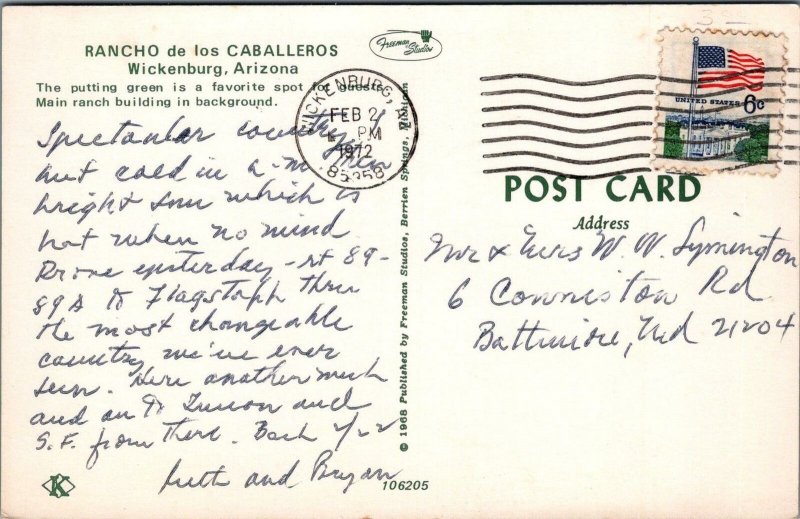 RANCHO de los CABALLEROS
Wickenburg, Arizona
The putting green is a favorite spot for guests.
Main ranch building in background.
Freeman Studios
WICKENBURG, AZ
FEB 2
PM
1972
85358
UNITED STATES 6c
Spectacular country
but cold in a-m then
bright sun which is
hot when no wind
Drove yesterday - rt 89-
89A to Flagstaff thru
the most changeable
country we've ever
seen. Here another week
and on to Tucson and
S.F. from there. Back 2/22
Ruth and Bryan
© 1968 Published by Freeman Studios, Berrien Springs, Michigan
POST CARD
Address
Mr & Mrs W. W. Symington
6 Conniston Rd
Baltimore, Md 21204
K
106205